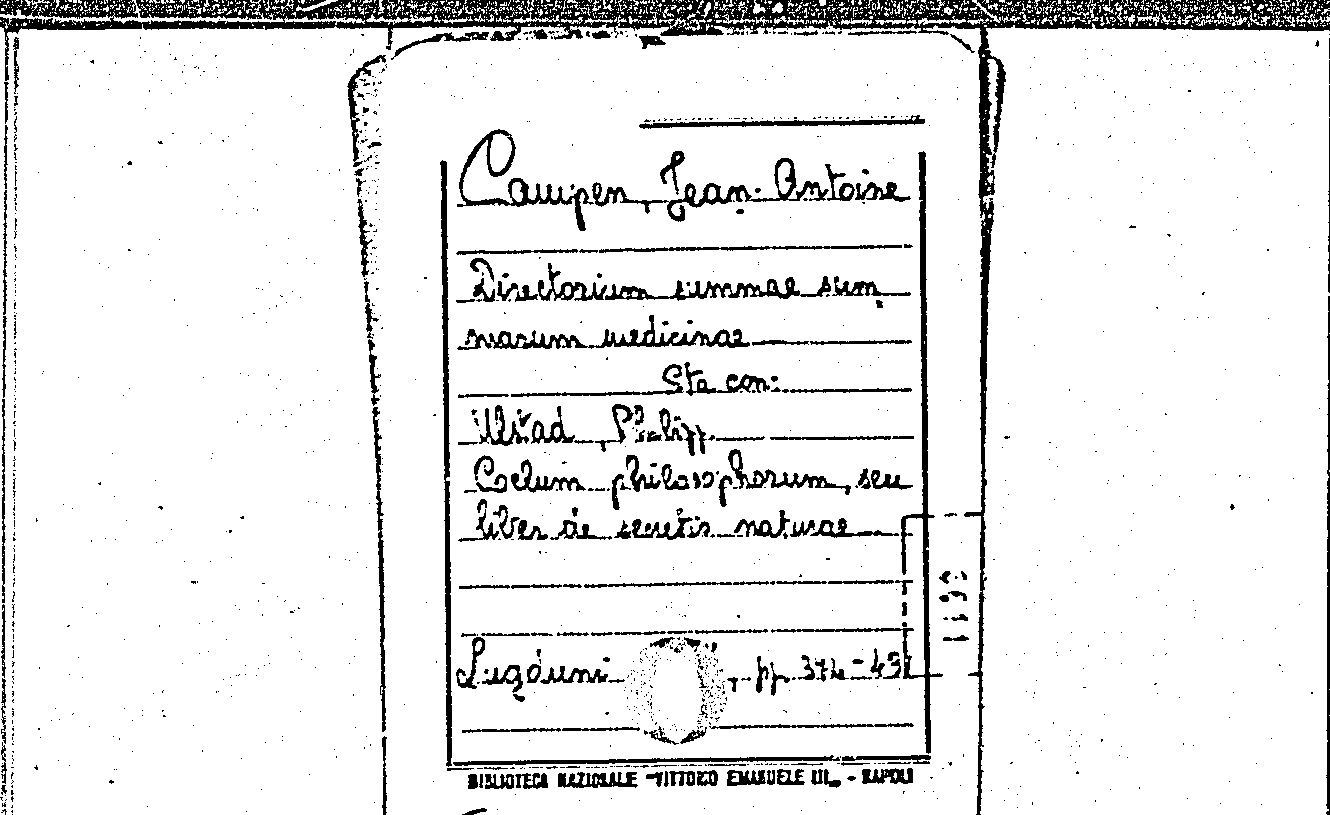 Campen, Jean-Antoine
Directorium summae sum
marum medicinae
Sta con:
Ulstad, Philipp.
Coelum philosophorum, seu
liber de secretis naturae
Lugduni , pp. 374-45
BIBLIOTECA NAZIONALE "VITTORIO EMANUELE III" - NAPOLI